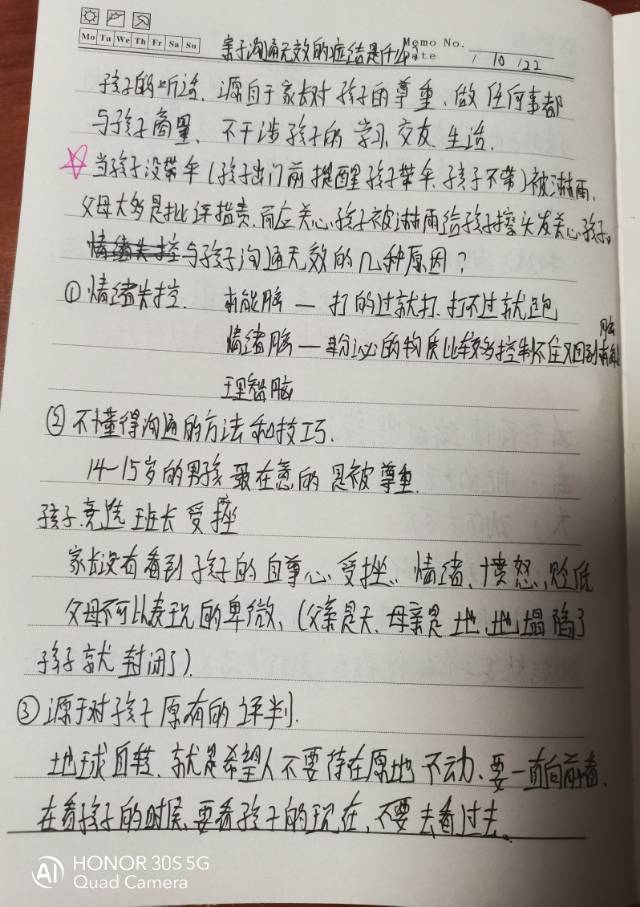 Mo Tu We Th Fr Sa Su
Memo No.
Date / 10 / 22
亲子沟通无效的症结是什么?
孩子的听话、源自于家长对孩子的尊重、做任何事都
与孩子商量、不干涉孩子的学习、交友、生活.
☆当孩子没带伞(孩子出门前提醒孩子带伞、孩子不带)被淋雨、
父母大多是批评指责、而在关心、孩子被淋雨给孩子擦头发关心孩子。
情绪失控与孩子沟通无效的几种原因?
①情绪失控. 本能脑 — 打的过就打.打不过就跑
情绪脑 — 分泌的物质比较多控制不住又回到本能脑
理智脑
②不懂得沟通的方法和技巧.
14—15岁的男孩最在意的是被尊重.
孩子竞选班长受挫
家长没有看到孩子的自尊心、受挫、情绪、愤怒、贬低
父母不可以表现的卑微、(父亲是天、母亲是地、地塌陷了
孩子就封闭了).
③源于对孩子原有的评判.
地球自转、就是希望人不要待在原地不动、要一直向前看.
在看孩子的时候、要看孩子的现在、不要去看过去。
AI HONOR 30S 5G
Quad Camera